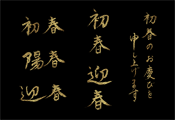 初春のお慶びを
申し上げます
初春
迎春
初春
陽春
迎春